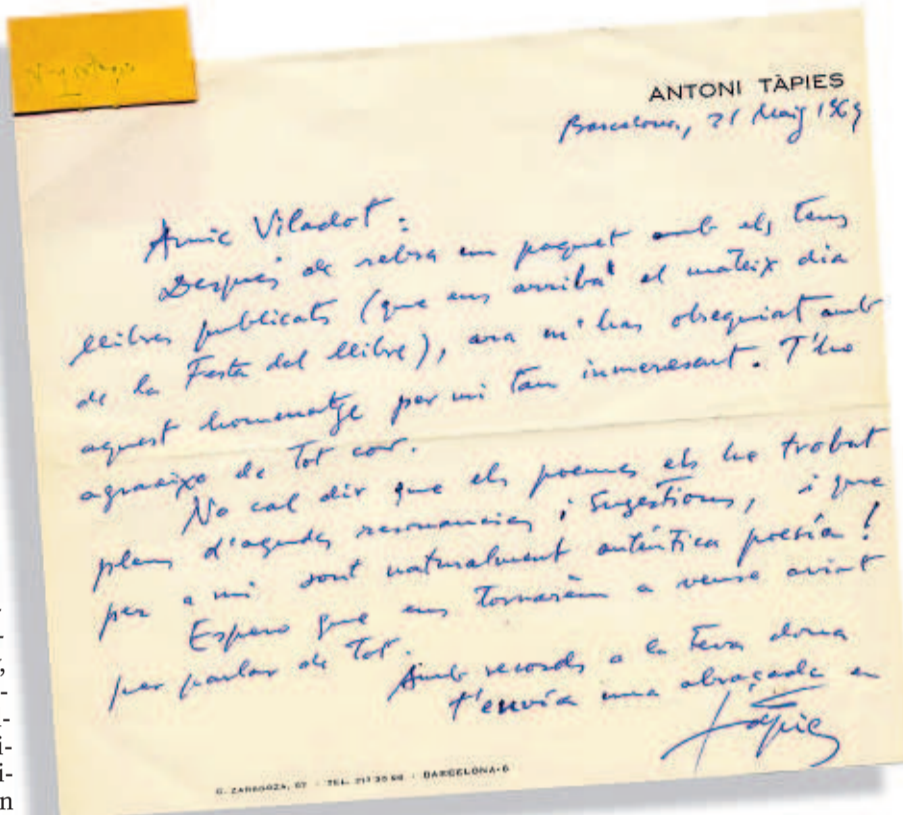 ANTONI TÀPIES
Barcelona, 21 Maig 1969
Amic Viladot:
Després de rebra un paquet amb els teus
llibres publicats (que ens arribà el mateix dia
de la Festa del llibre), ara m'has obsequiat amb
aquest homenatge per mi tan inmerescut. T'ho
agraeixo de tot cor.
No cal dir que els poemes els he trobat
plens d'agudes resonancies i sugestions, i que
per a mi sont naturalment autèntica poesía!
Espero que ens tornarèm a veure aviat
per parlar de tot.
Amb records a la teva dona
t'envía una abraçada en
Tàpies
C. ZARAGOZA, 57 · TEL. 217 33 98 · BARCELONA-6
n